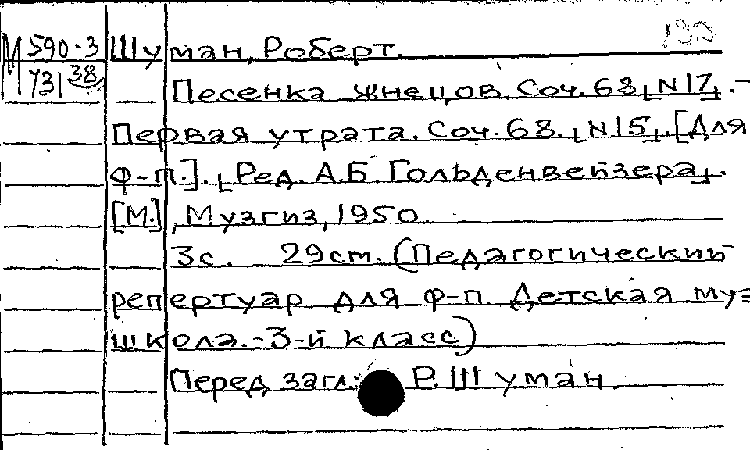 М 590-3
731 38
Шуман, Роберт.
Песенка жнецов. Соч. 68, N17. -
Первая утрата. Соч. 68. [N15]. [Для
ф-п.]. [Ред. А.Б Гольденвейзера].
[М.], Музгиз, 1950.
3с. 29см. (Педагогический
репертуар для ф-п. Детская муз
школа. - 3-й класс)
Перед загл.: Р. Шуман.